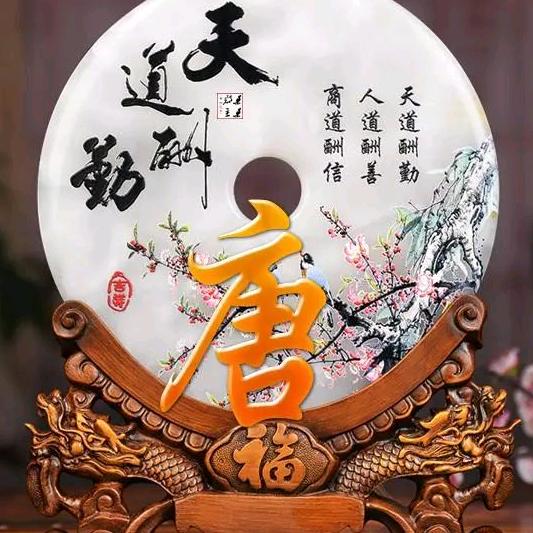 天道酬勤
天道酬勤
人道酬善
商道酬信
吉祥
唐
福